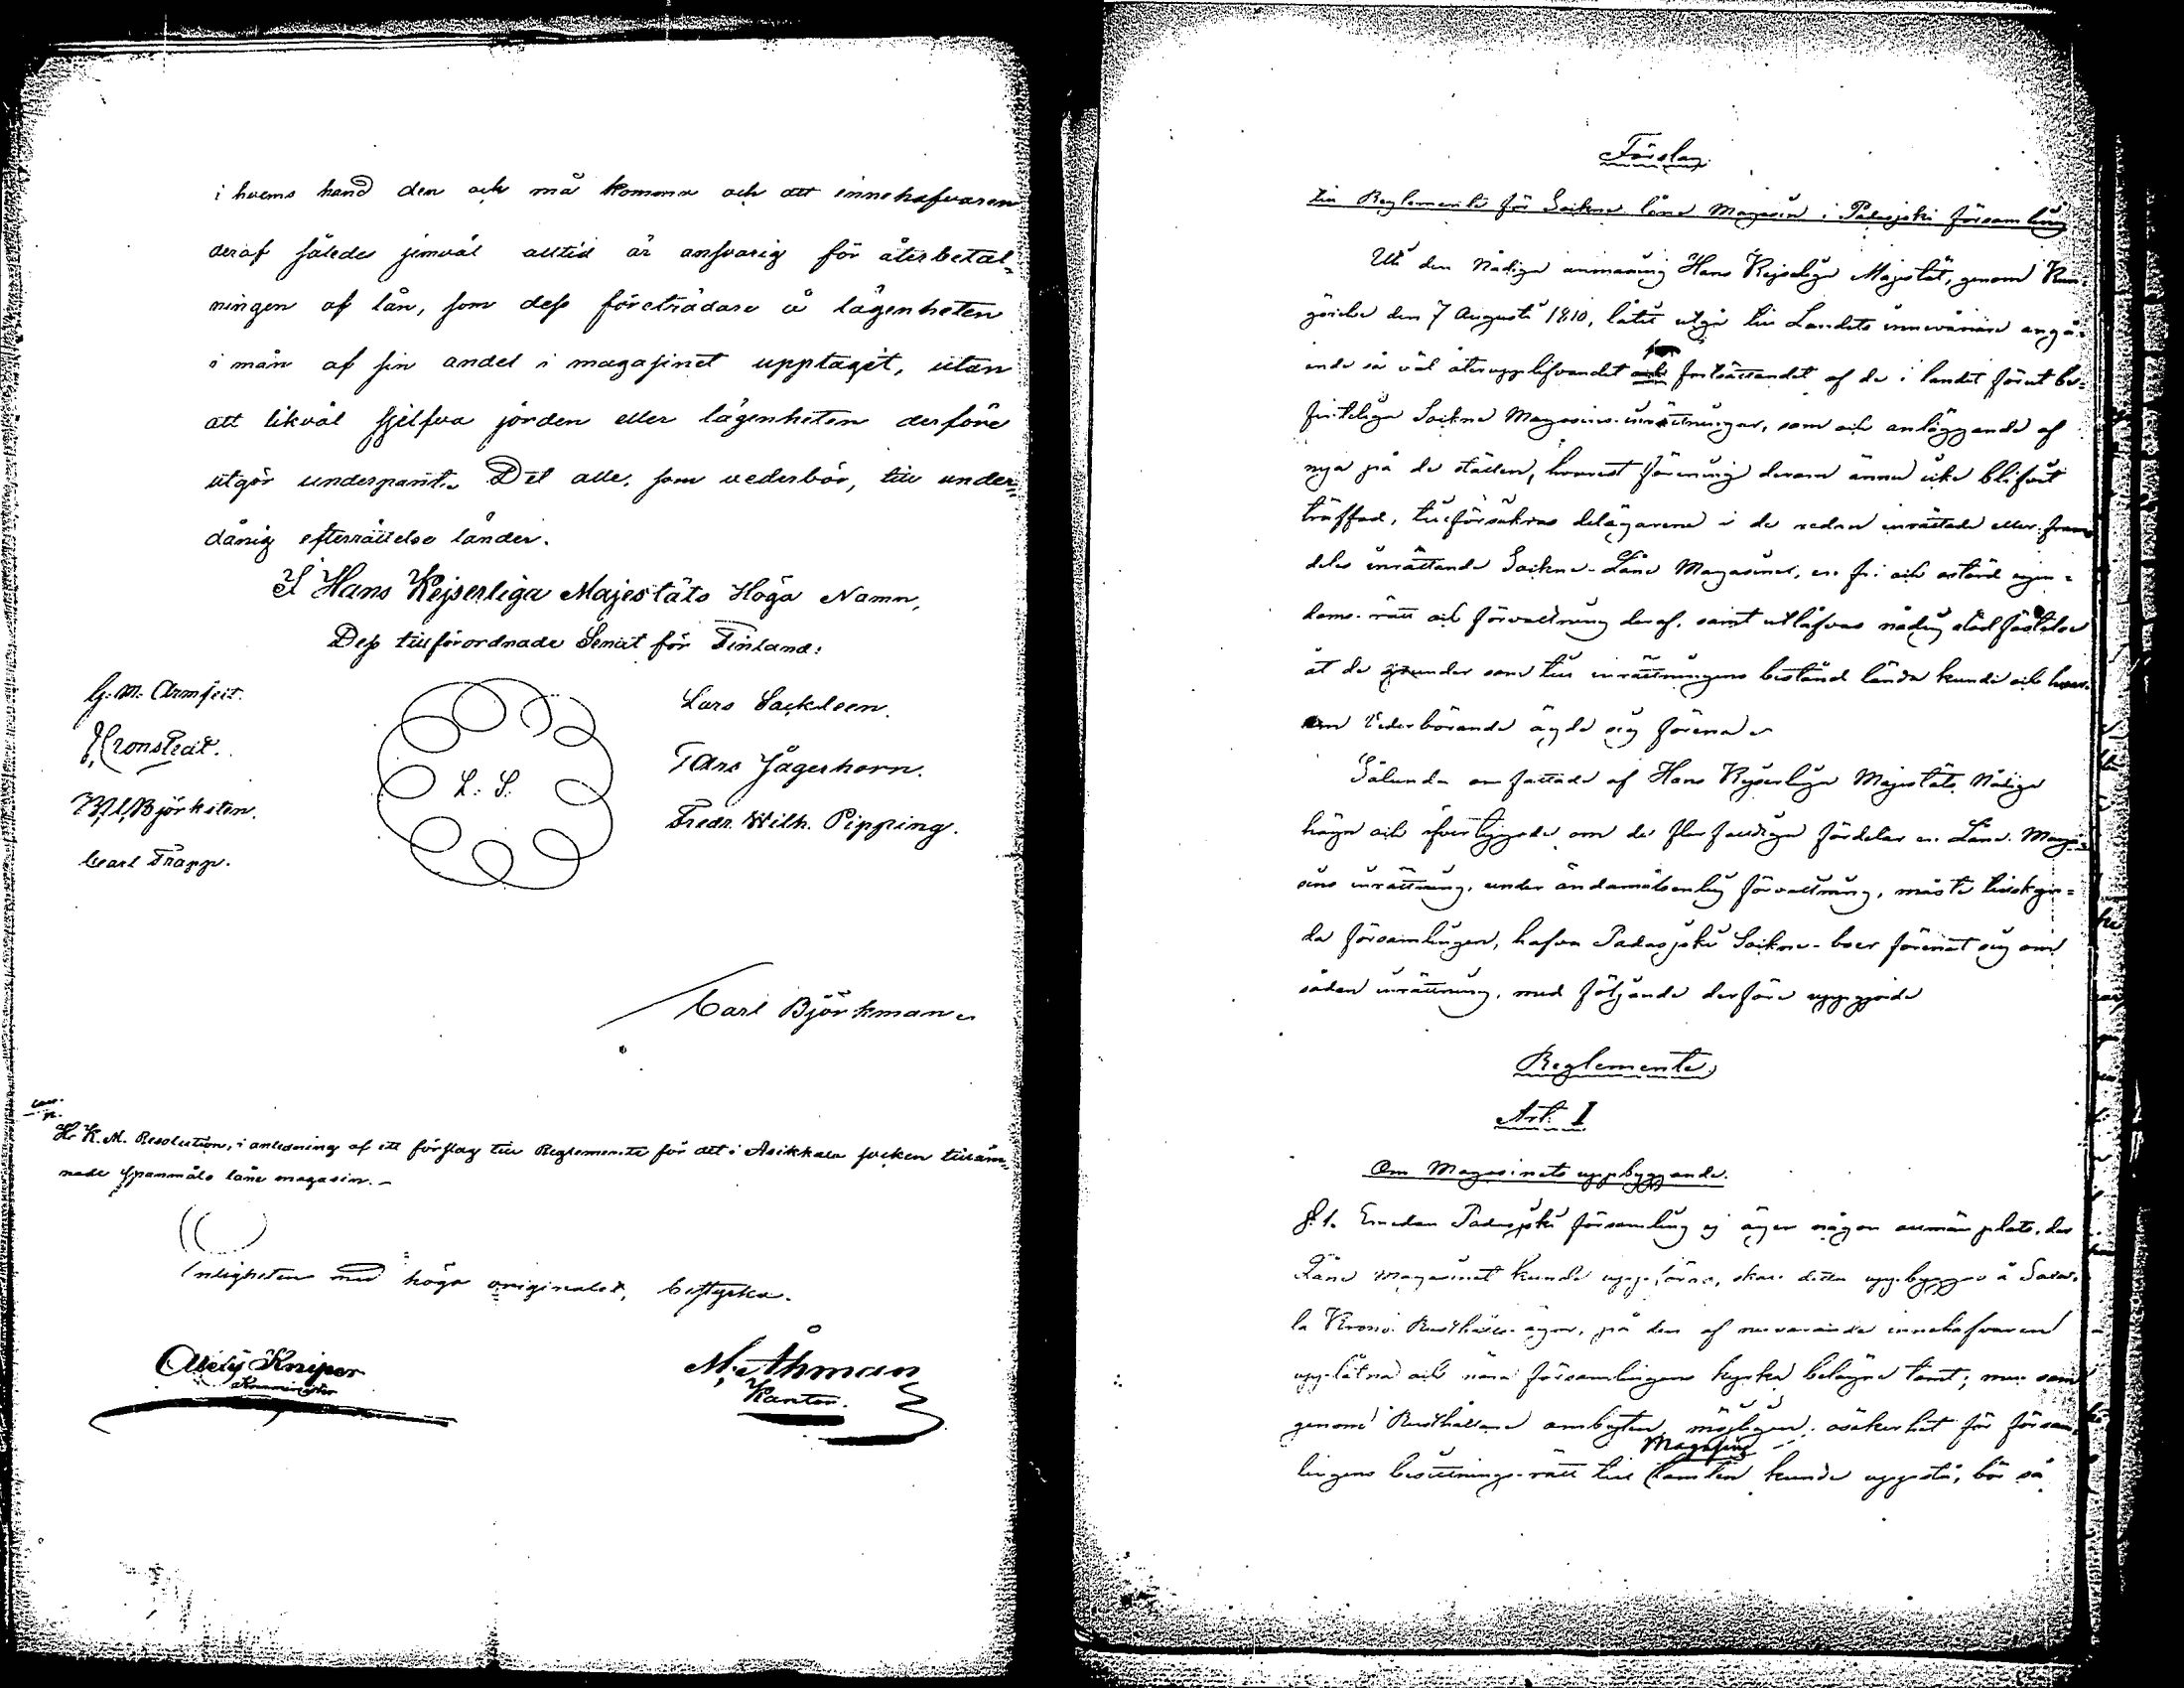 i hvems hand den och må komma och att innehafvaren
deraf således jemväl alltid är ansvarig för återbetal=
ningen af lån, som dess företrädare å lägenheten
i mån af sin andel i magasinet upptagit, utan
att likväl sjelfva jorden eller lägenheten derföre
utgör underpant. Det alle, som vederbör, till under=
dånig efterrättelse länder.
I Hans Kejserliga Majestäts Höga Namn,
Dess tillförordnade Senat för Finland:
G. M. Armfelt.
J. Cronstedt.
Björksten.
Carl Trapp.
L. S.
Lars Sackleen.
Jägerhorn.
Fredr. Wilh. Pipping.
Carl Björkman
H. K. M. Resolution, i anledning af ett förslag till Reglemente för det i Asikkala socken tilläm=
nade spannmåls låne magasin.
Enligheten med höga originalet, bestyrka.
Kniper
M. Åhman
Kantor.
Förslag
till Reglemente för Sockne låne Magasin i Padasjoki församling
Uti den Nådiga anmaning Hans Kejserliga Majestät, genom Kun=
görelse den 7 Augusti 1810, låtit utgå till Landets innevånare angå=
ende så väl återupplifvandet och fortsättandet af de i landet förut be=
finteliga Sockne Magasins-inrättningar, som och anläggande af
nya på de ställen, hvarest förening derom ännu icke blifvit
träffad, tillförsäkras delägarene i de redan inrättade eller fram
deles inrättande Sockne-Låne Magasiner, en fri och ostörd egen=
doms-rätt och förvaltning deraf, samt utlåfvas nådig stadfästelse
åt de grunder som till inrättningens bestånd lända kunde och hvar
om Vederbörande ägde sig förena
Sålunda omfattade af Hans Kejserliga Majestäts Nådiga
hägn och öfvertygade om de flerfaldiga fördelar en Låne-Maga=
sins inrättning, under ändamålsenlig förvaltning, måste tillskyn=
da församlingen, hafva Padasjoki Sockne-boer förenat sig om
sådan inrättning, med följande derföre uppgjorde
Reglemente
Art. I
Om Magasinets uppbyggande.
§. 1. Emedan Padasjoki församling ej äger någon allmän plats, der
Låne magasinet kunde uppföras, skall detta uppbyggas å
la Krono Rusthålls ägor, på den af nuvarande innehafvaren
upplåtna och nära församlingens kyrka belägna tomt; men som
genom Rusthållare ombyten möjligen osäkerhet för försam
Magasins
lingens besittnings-rätt till tomten kunde uppstå, bör så